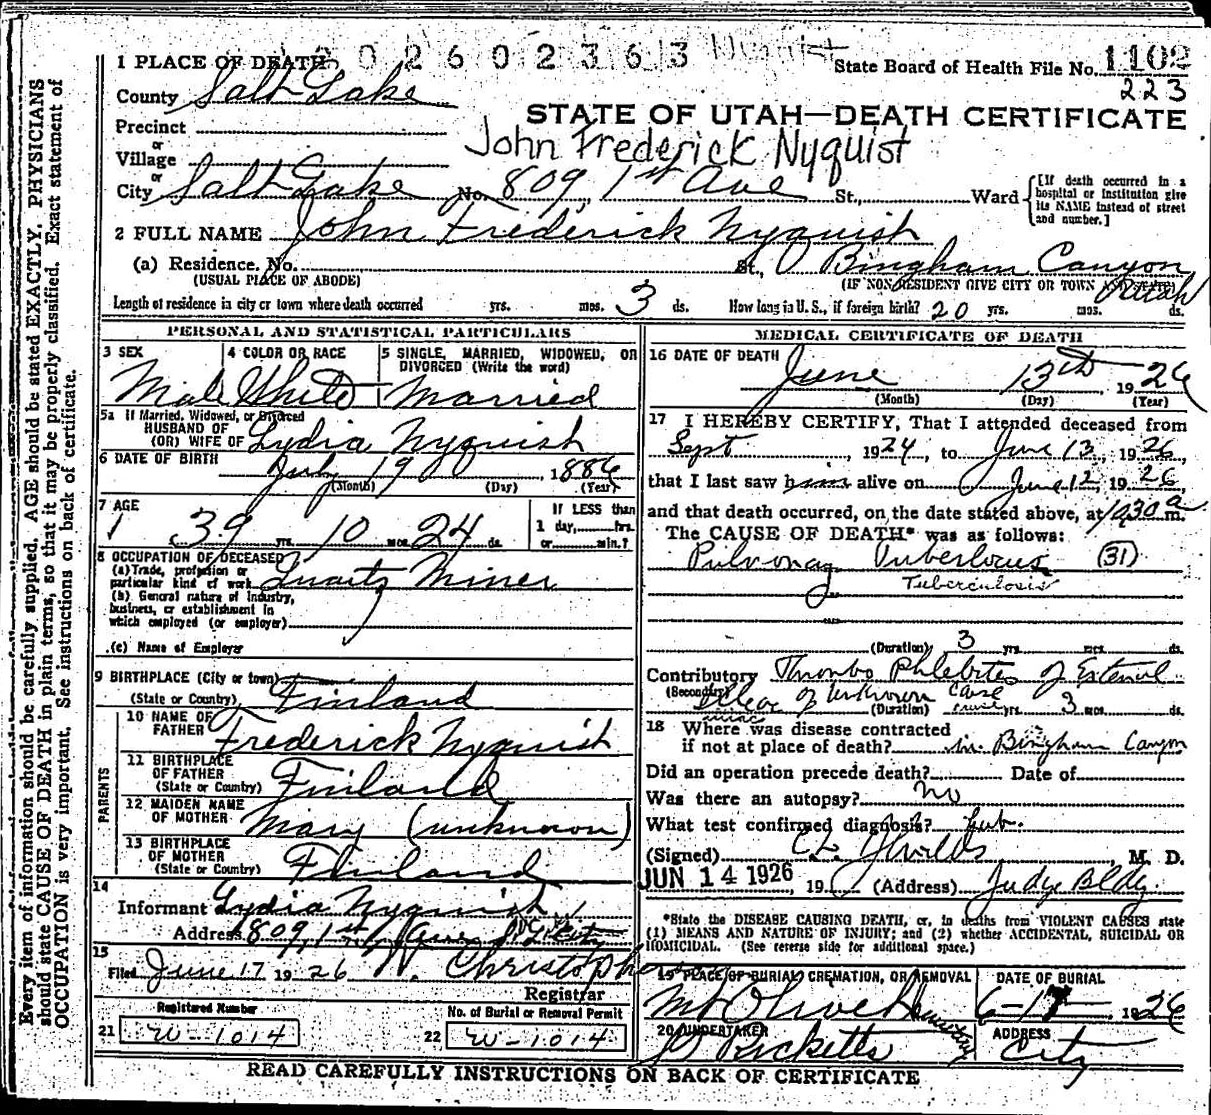 2 0 2 6 0 2 3 6 3 Nyquist
1 PLACE OF DEATH
State Board of Health File No. 1102
223
County Salt Lake
STATE OF UTAH—DEATH CERTIFICATE
Precinct
or
Village
John Frederick Nyquist
or
City Salt Lake No. 809, 1st Ave St., Ward
[If death occurred in a hospital or institution give its NAME instead of street and number.]
2 FULL NAME John Frederick Nyquist
(a) Residence, No. St., Bingham Canyon Utah
(USUAL PLACE OF ABODE) (IF NON RESIDENT GIVE CITY OR TOWN AND STATE)
Length of residence in city or town where death occurred yrs. mos. 3 ds. How long in U. S., if foreign birth? 20 yrs. mos. ds.
PERSONAL AND STATISTICAL PARTICULARS
3 SEX Male
4 COLOR OR RACE White
5 SINGLE, MARRIED, WIDOWED, OR DIVORCED (Write the word) Married
5a If Married, Widowed, or Divorced
HUSBAND OF
(OR) WIFE OF Lydia Nyquist
6 DATE OF BIRTH July 19 1886
(Month) (Day) (Year)
7 AGE 39 yrs. 10 mos. 24 ds.
IF LESS than
1 day, hrs.
or min.?
8 OCCUPATION OF DECEASED
(a) Trade, profession or
particular kind of work Quartz Miner
(b) General nature of Industry,
business, or establishment in
which employed (or employer)
(c) Name of Employer
9 BIRTHPLACE (City or town)
(State or Country) Finland
PARENTS
10 NAME OF
FATHER Frederick Nyquist
11 BIRTHPLACE
OF FATHER
(State or Country) Finland
12 MAIDEN NAME
OF MOTHER Mary (unknown)
13 BIRTHPLACE
OF MOTHER
(State or Country) Finland
14
Informant Lydia Nyquist
Address 809, 1st Ave S L City
15
Filed June 17 1926 Christoph
Registrar
Registered Number
21 W-1014
No. of Burial or Removal Permit
22 W-1014
MEDICAL CERTIFICATE OF DEATH
16 DATE OF DEATH June 13th, 1926
(Month) (Day) (Year)
17 I HEREBY CERTIFY, That I attended deceased from
Sept, 1924, to June 13, 1926,
that I last saw him alive on June 12, 1926,
and that death occurred, on the date stated above, at 10 30 a m.
The CAUSE OF DEATH* was as follows:
Pulvonay Tuberlocus (31)
Tuberculosis
(Duration) 3 yrs. mos. ds.
Contributory Thrombo Phlebites of External
(Secondary) of unknown cause
iliac (Duration) yrs. 3 mos. ds.
18 Where was disease contracted
if not at place of death? in Bingham Canyon
Did an operation precede death? Date of
Was there an autopsy? no
What test confirmed diagnosis? Lab.
(Signed) C L Shields, M. D.
JUN 14 1926, 19 (Address) Judge Bldg.
*State the DISEASE CAUSING DEATH, or, in deaths from VIOLENT CAUSES state
(1) MEANS AND NATURE OF INJURY; and (2) whether ACCIDENTAL, SUICIDAL OR
HOMICIDAL. (See reverse side for additional space.)
19 PLACE OF BURIAL, CREMATION, OR REMOVAL
Mt Olivet Cemetery
DATE OF BURIAL
6-17 1926
20 UNDERTAKER
Ricketts
ADDRESS
City
READ CAREFULLY INSTRUCTIONS ON BACK OF CERTIFICATE
Every item of information should be carefully supplied. AGE should be stated EXACTLY. PHYSICIANS
should state CAUSE OF DEATH in plain terms, so that it may be properly classified. Exact statement of
OCCUPATION is very important. See instructions on back of certificate.